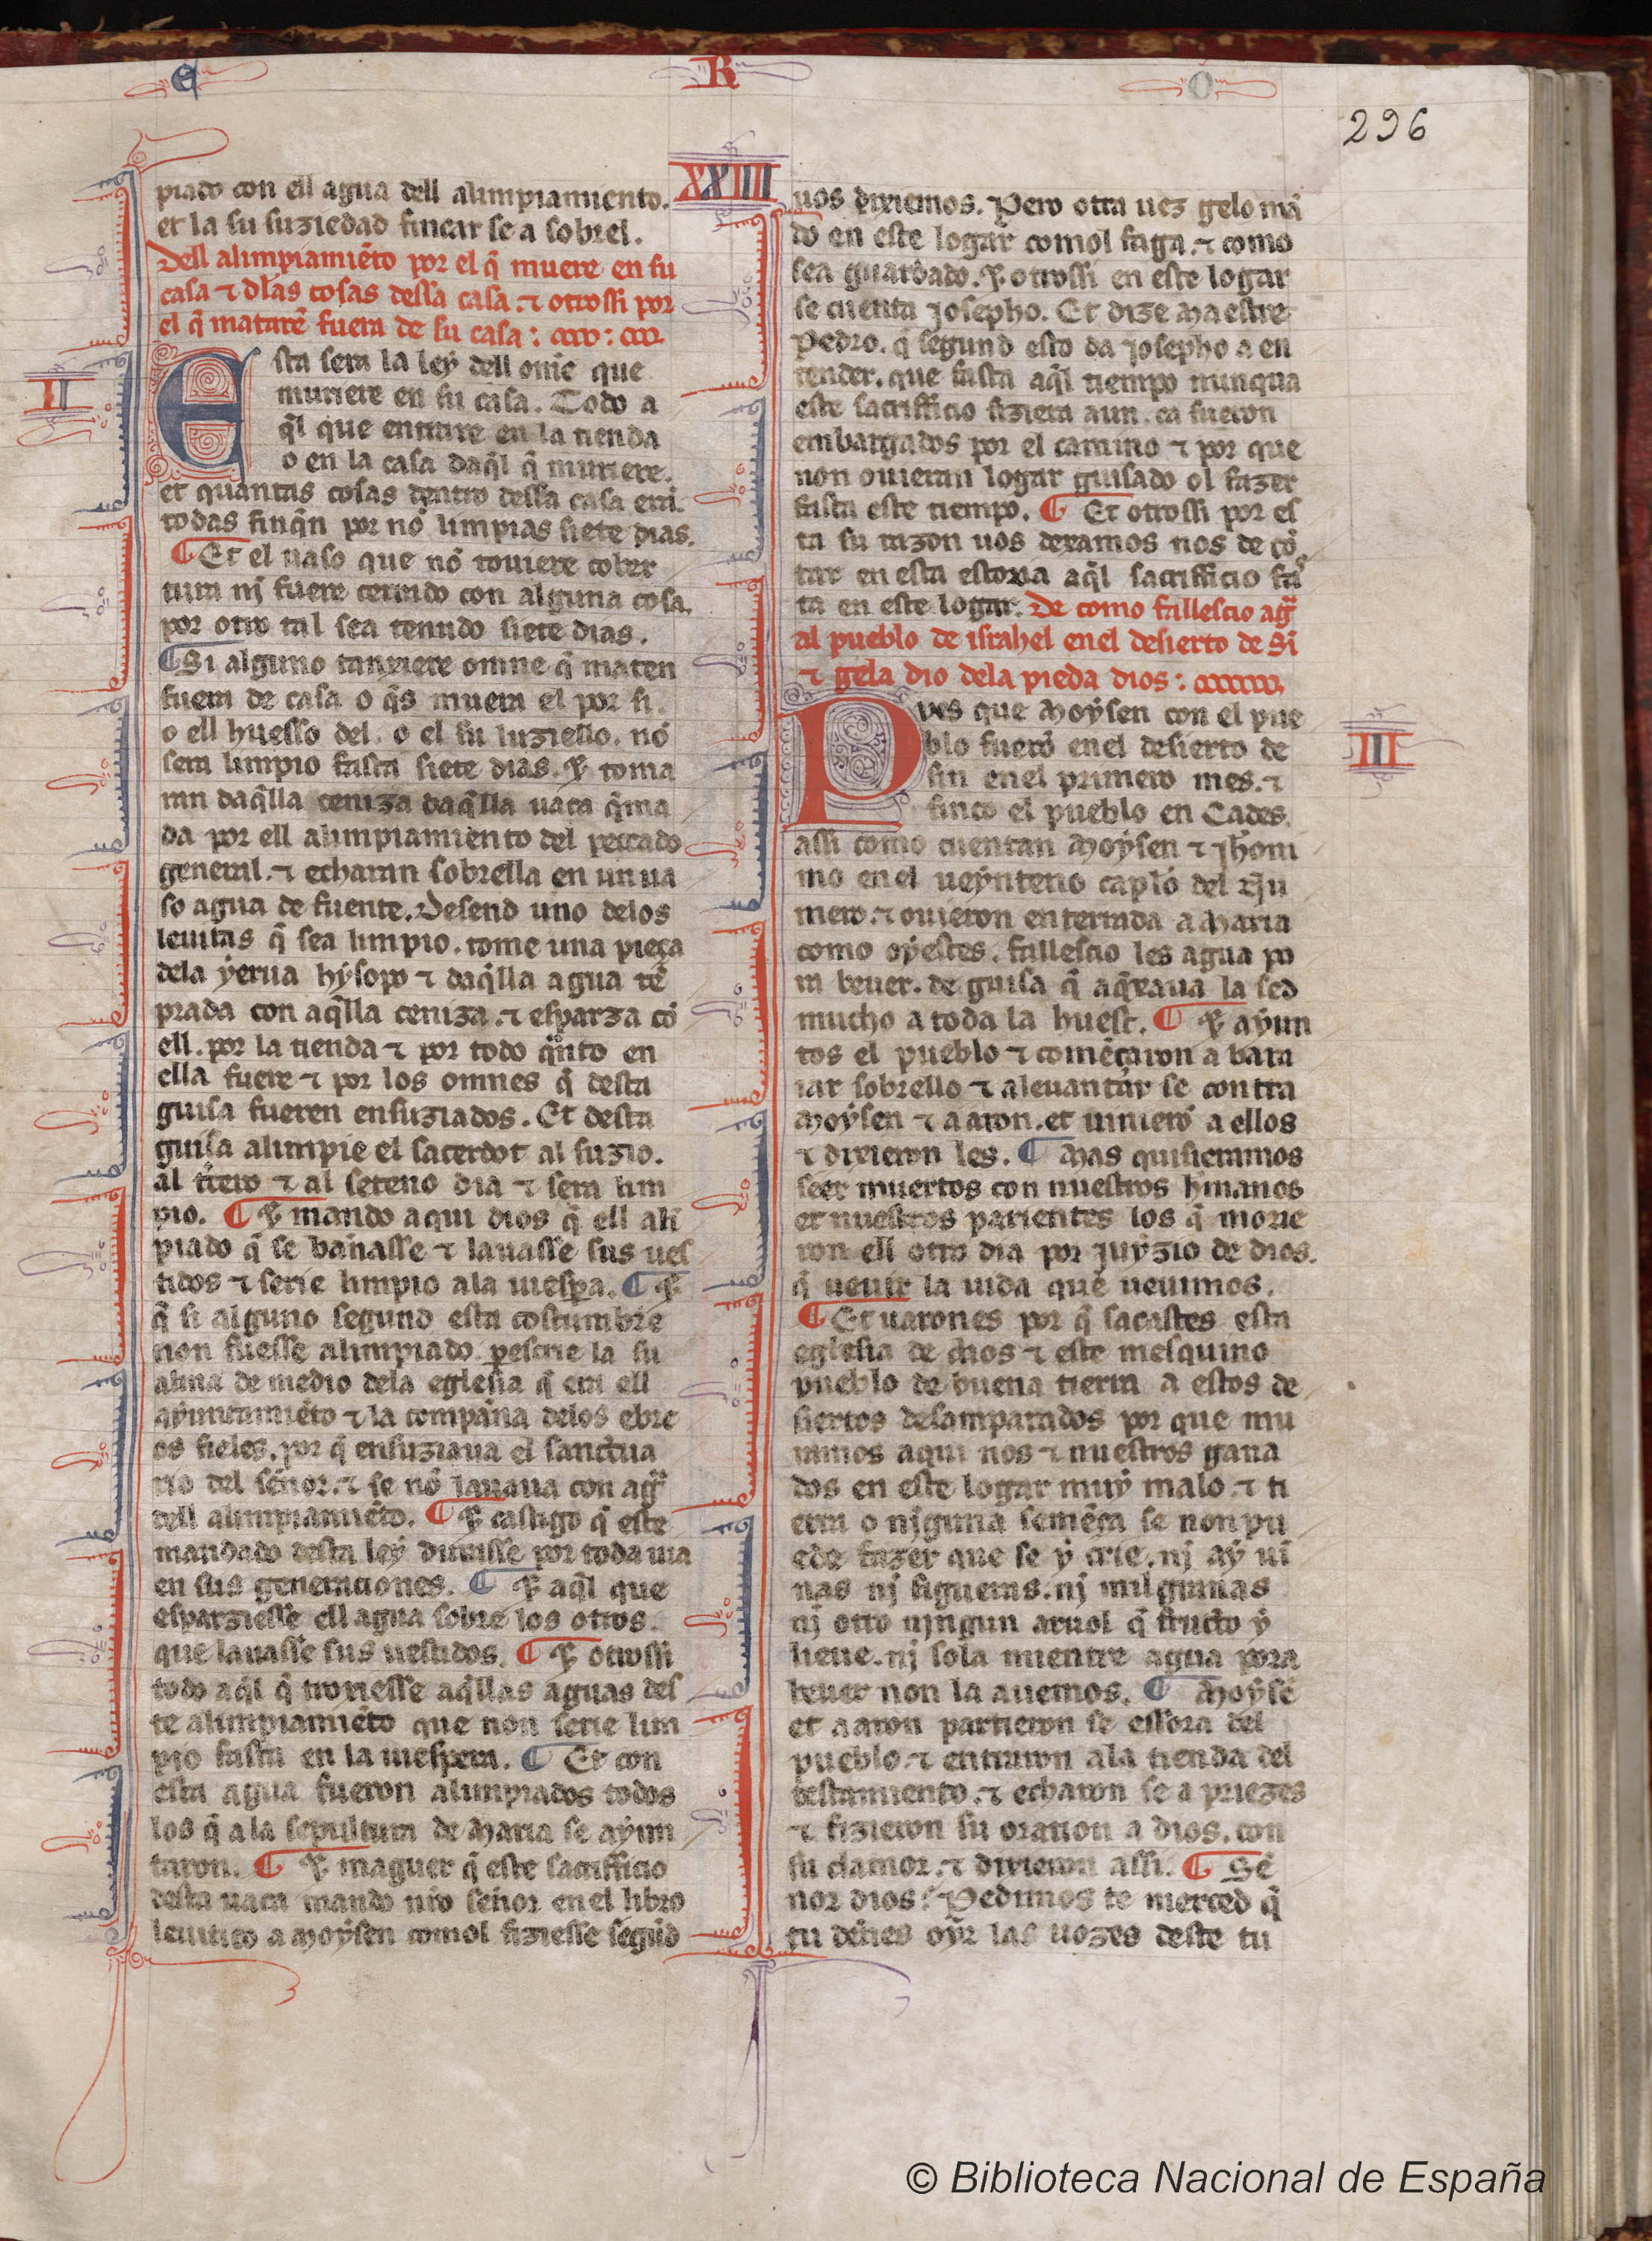 E R O
296
XXIIII
piado con ell agua dell alimpiamiento.
et la su suziedad fincar se a sobrel.
Dell alimpiamiẽto por el q̃ muere en su
casa ⁊ dłas cosas dessa casa. ⁊ otrossi por
el q̃ matarẽ fuera de su casa :
II
Esta sera la ley dell om̃e que
muriere en su casa. Todo a
q̃l que entrare en la tienda
o en la casa daq̃l q̃ muriere.
et quantas cosas dentro dessa casa erã.
todas finq̃n por nõ limpias siete dias.
¶ Et el uaso que nõ touiere cober
tura nj fuere cerrado con alguna cosa.
por otro tal sea tenudo siete dias.
¶ Si alguno tanxiere omne q̃ maten
fuera de casa o q̃s muera el por si.
o ell huesso del. o el su luziello. nõ
sera limpio fasta siete dias. ⁊ toma
ran daq̃lla ceniza daq̃lla uaca q̃ma
da por ell alimpiamiento del peccado
general. ⁊ echaran sobrella en un ua
so agua de fuente. Desend uno delos
leuitas q̃ sea limpio. tome una pieça
dela yerua hysopo ⁊ daq̃lla agua tẽ
prada con aq̃lla ceniza. ⁊ esparza cõ
ell. por la tienda ⁊ por todo q̃nto en
ella fuere ⁊ por los omnes q̃ desta
guisa fueren ensuziados. Et desta
guisa alimpie el sacerdot al suzio.
al t̃cero ⁊ al seteno dia ⁊ sera lim
pio. ¶ ⁊ mando aqui dios q̃ ell alĩ
piado q̃ se bañasse ⁊ lauasse sus ues
tidos ⁊ serie limpio ala uiespa. ¶ ⁊
q̃ si alguno segund esta costumbre
non fuesse alimpiado. pescrie la su
alma de medio dela eglesia q̃ era ell
ayuntamiẽto ⁊ la compaña delos ebre
os fieles. por q̃ ensuziaua el sanctua
rio del señor. ⁊ se nõ lauaua con agᷓ
dell alimpiamiẽto. ¶ ⁊ castigo q̃ este
mandado desta ley durasse por toda uia
en sus generationes. ¶ ⁊ aq̃l que
esparziesse ell agua sobre los otros.
que lauasse sus uestidos. ¶ ⁊ otrossi
todo aq̃l q̃ tronxiesse aq̃llas aguas des
te alimpiamieto que non serie lim
pio fasta en la uiespera. ¶ Et con
esta agua fueron alimpiados todos
los q̃ a la sepultura de Maria se ayun
taron. ¶ ⁊ maguer q̃ este sacrifficio
desta uaca mando nr̃o señor en el libro
leuitico a Moysen comol fiziesse segũd
uos dixiemos. Pero otra uez gelo mã
do en este logar comol faga. ⁊ como
sea guardado. ⁊ otrossi en este logar
se cuenta Josepho. Et dize Maestre
Pedro. q̃ segund esto da Josepho a en
tender. que fasta aq̃l tiempo nunqua
este sacrifficio fiziera aun. ca fueron
embargados por el camino ⁊ por que
non ouieran logar guisado ol fazer
fasta este tiempo. ¶ Et otrossi por es
ta su razon uos dexamos nos de cõ
tar en esta estoria aq̃l sacrifficio fas
ta en este logar. De como fallescio agᷓ
al pueblo de israhel en el desierto de Si
⁊ gela dio dela pieda dios :
III
Pves que Moysen con el pue
blo fuerõ en el desierto de
sin en el primero mes. ⁊
finco el pueblo en Cades.
assi como cuentan Moysen ⁊ Jheroni
mo en el ueynteno capĩo del Nu
mero. ⁊ ouieron enterrada a Maria
como oyestes. fallescio les agua po
ra beuer. de guisa q̃ aq̃xaua la sed
mucho a toda la huest. ¶ ⁊ ayun
tos el pueblo ⁊ comẽçaron a bara
iar sobrello ⁊ aleuantar se contra
Moysen ⁊ aaron. et uinierõ a ellos
⁊ dixieron les. ¶ Mas quisieramos
seer muertos con nuestros hm̃anos
et nuestros parientes los q̃ morie
ron ell otro dia por juyzio de dios.
q̃ ueuir la uida que ueuimos.
¶ Et uarones por q̃ sacastes esta
eglesia de dios ⁊ este mesquino
pueblo de buena tierra a estos de
siertos desamparados por que mu
ramos aqui nos ⁊ nuestros gana
dos en este logar muy malo. ⁊ ti
erra o njguna semẽça se non pu
ede fazer que se y crie. nj ay ui
nas nj figueras. nj milgranas
nj otro njngun aruol q̃ fructo y
lieue. nj sola mientre agua pora
beuer non la auemos. ¶ Moysẽ
et aaron partieron se essora del
pueblo. ⁊ entraron ala tienda del
testamiento. ⁊ echaron se a priezes
⁊ fizieron su oration a dios. con
su clamor. ⁊ dixieron assi. ¶ Se
ñor dios: Pedimos te merced q̃
tu deñes oyr las uozes deste tu
© Biblioteca Nacional de España